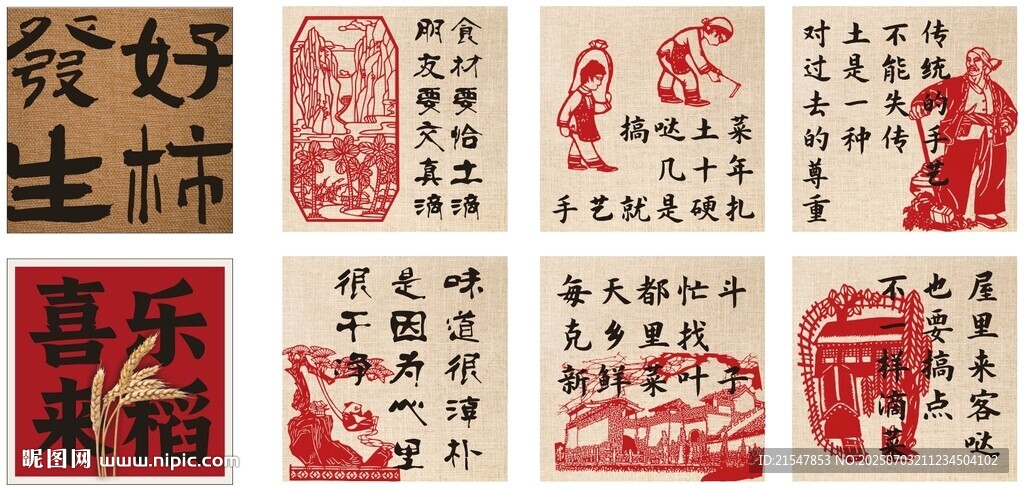 好柿
發生
食材要恰土滴
朋友要交真滴
搞哒土菜
几十年
手艺就是硬扎
传统的手艺
不能失传
土是一种
对过去的尊重
喜来
乐稻
味道很淳朴
是因为心里
很干净
每天都忙斗
克乡里找
新鲜菜叶子
屋里来客哒
也要搞点
不一样滴菜
昵图网 www.nipic.com
ID:21547853 NO:20250703211234504102